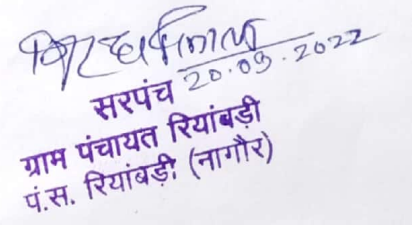 20.03.2022
सरपंच
ग्राम पंचायत रियांबड़ी
पं.स. रियांबड़ी (नागौर)